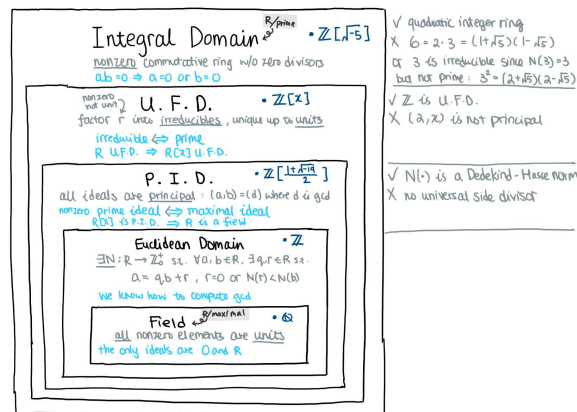 Integral Domain
R/prime
• ℤ[√-5]
nonzero commutative ring w/o zero divisors
ab=0 ⇒ a=0 or b=0
nonzero
not unit
U.F.D.
• ℤ[x]
factor r into irreducibles, unique up to units
irreducible ⇔ prime
R U.F.D. ⇒ R[x] U.F.D.
P.I.D.
• ℤ[(1+√-19)/2]
all ideals are principal : (a,b)=(d) where d is gcd
nonzero prime ideal ⇔ maximal ideal
R[x] is P.I.D. ⇒ R is a field
Euclidean Domain
• ℤ
∃N: R → ℤ₀⁺ s.t. ∀a,b∈R, ∃q,r∈R s.t.
a = qb+r , r=0 or N(r)<N(b)
we know how to compute gcd
Field
R/maximal
• ℚ
all nonzero elements are units
the only ideals are 0 and R
✓ quadratic integer ring
X 6 = 2·3 = (1+√-5)(1-√-5)
or 3 is irreducible since N(3)=9
but not prime : 3² = (2+√-5)(2-√-5)
✓ ℤ is U.F.D.
X (2,x) is not principal
✓ N(·) is a Dedekind-Hasse norm
X no universal side divisor